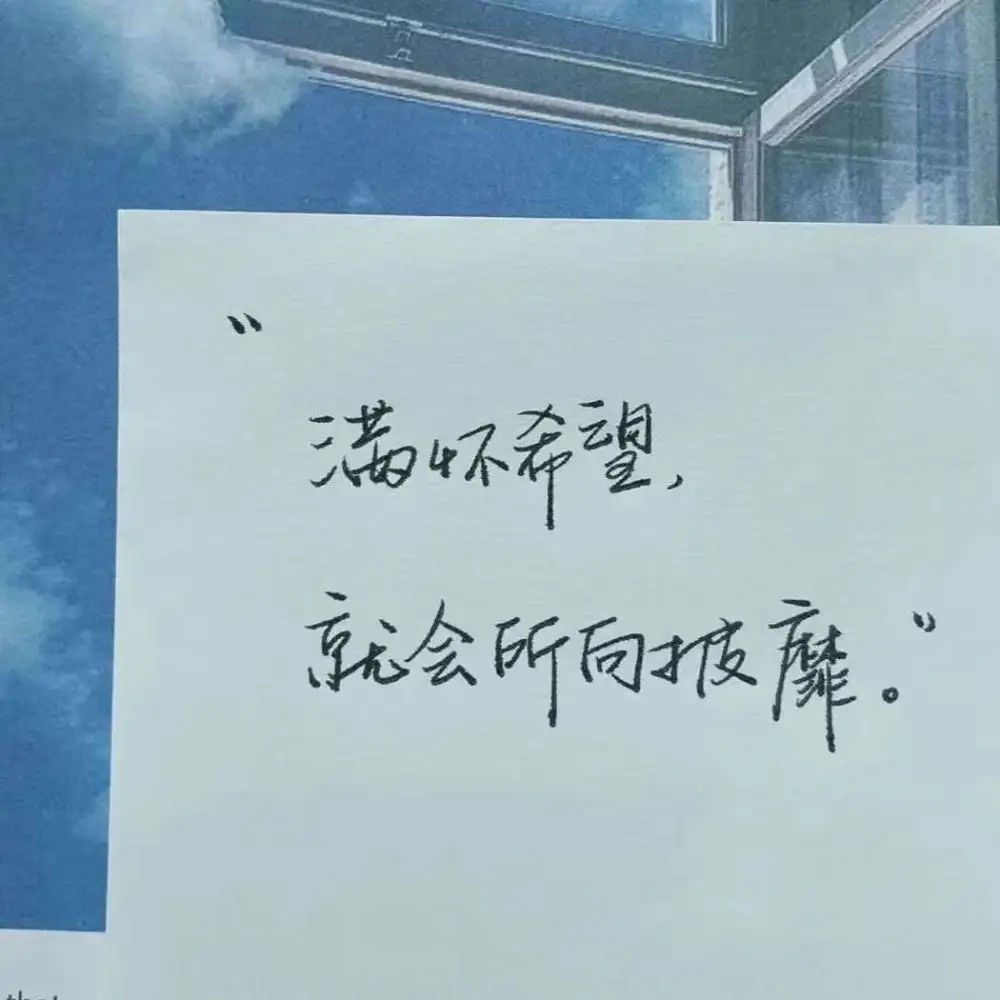 “
满怀希望，
就会所向披靡。”